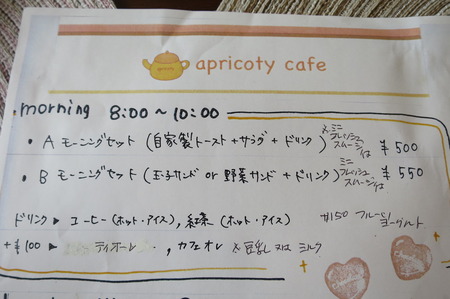 apricoty cafe
morning 8:00〜10:00
• A モーニングセット (自家製トースト+サラダ+ドリンク) ※ミニフレッシュスムージィは ¥500
• B モーニングセット (玉子サンド or 野菜サンド+ドリンク) ミニフレッシュスムージィは ¥550
ドリンク▶ コーヒー(ホット・アイス), 紅茶 (ホット・アイス) ¥150 フルーツヨーグルト
+¥100▶ ティオーレ, カフェオレ ※豆乳 又は ミルク